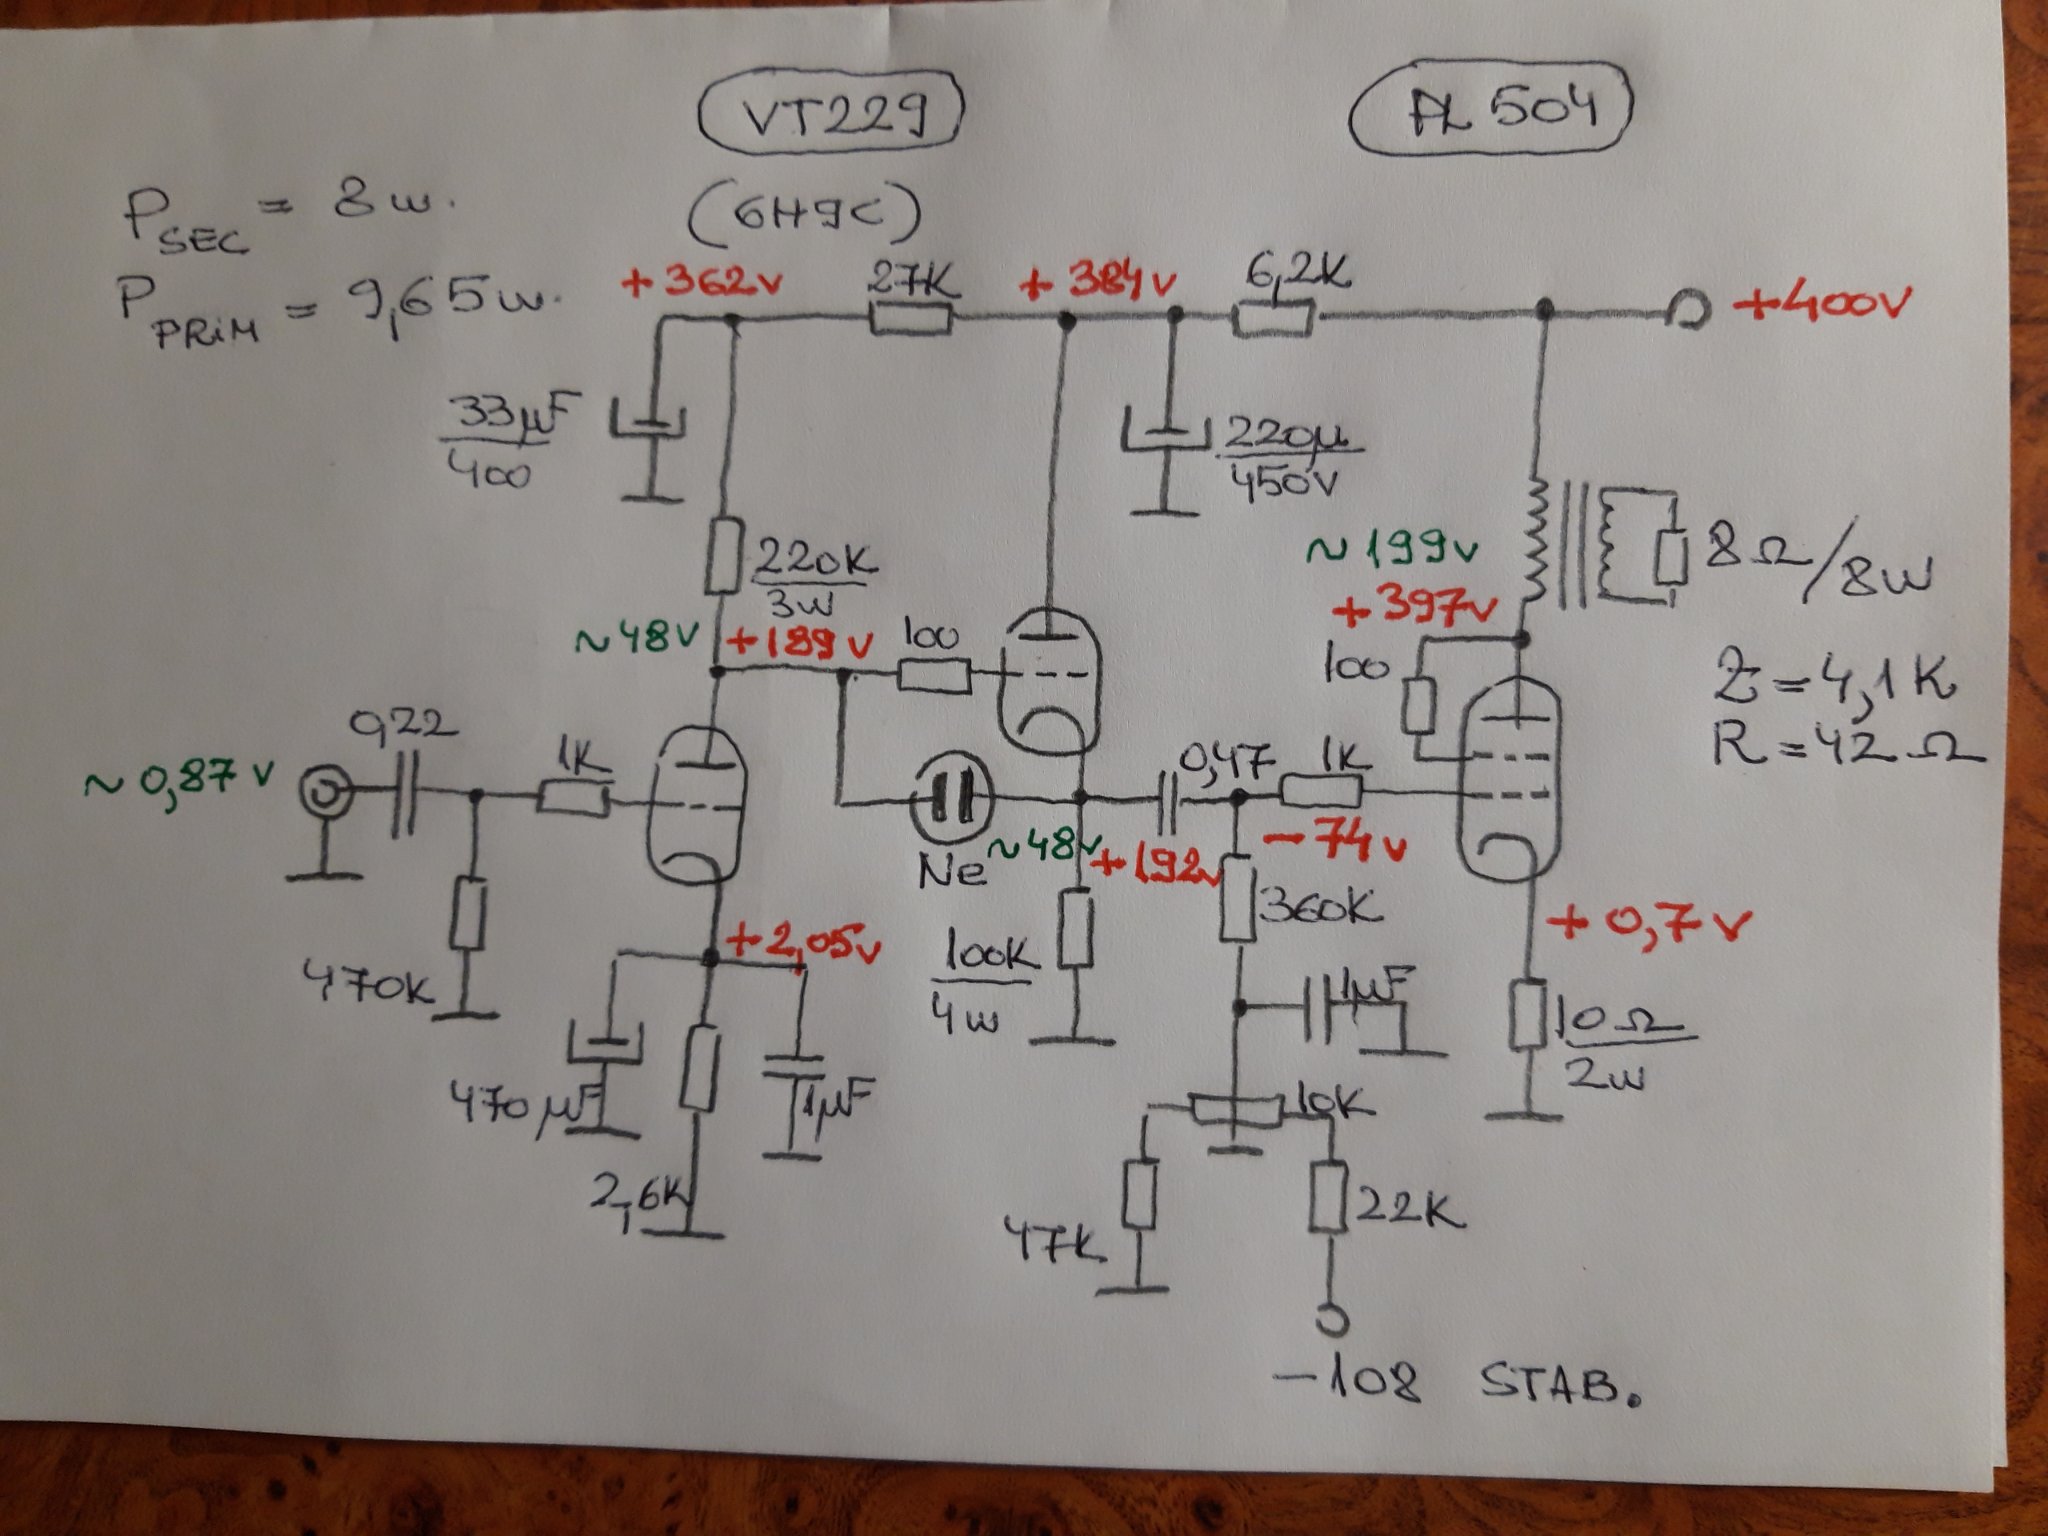 VT229
PL504
PSEC = 8w.
(6H9C)
PPRIM = 9,65w.
+362v
27K
+384v
6,2K
+400v
33µF
400
220µ
450V
220K
3w
~199v
+397v
8Ω/8w
~48v
+189v
100
100
Z=4,1K
R=42Ω
~0,87v
0,22
1K
0,47
1K
Ne
~48v
+192v
-74v
360K
+0,7v
+2,05v
470K
100K
4w
1µF
10Ω
2w
470µF
1µF
10K
2,6K
47K
22K
-108 STAB.